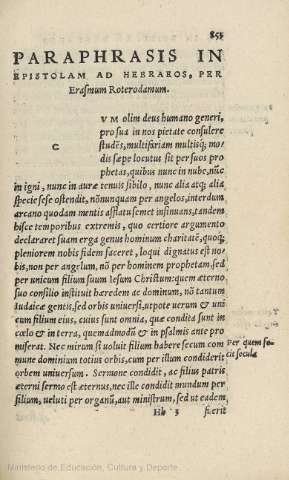 853
PARAPHRASIS IN
EPISTOLAM AD HEBRAEOS, PER
Erasmum Roterodamum.
C VM olim deus humano generi,
pro sua in nos pietate consulere
studẽs, multifariam multisq; mo-
dis sæpe locutus sit per suos pro
phetas, quibus nunc in nube, nũc
in igni, nunc in auræ tenuis sibilo, nunc alia atq; alia
specie sese ostendit, nõnunquam per angelos, interdum
arcano quodam mentis afflatu semet insinuans, tandem
hisce temporibus extremis, quo certiore argumento
declararet suam erga genus hominum charitatẽ, quoq;
pleniorem nobis fidem faceret, loqui dignatus est no-
bis, non per angelum, nõ per hominem prophetam, sed
per unicum filium suum Iesum Christum: quem æterno
suo consilio instituit hæredem ac dominum, nõ tantum
Iudaicæ gentis, sed orbis uniuersi, utpote uerum & uni
cum filium eius, cuius sunt omnia, quæ condita sunt in
cœlo & in terra, quemadmodũ & in psalmis ante pro
miserat. Nec mirum si uoluit filium habere secum com
mune dominium totius orbis, cum per illum condiderit
orbem uniuersum. Sermone condidit, ac filius patris
æterni sermo est æternus, nec ille condidit mundum per
filium, ueluti per organũ, aut ministrum, sed ut eadem,
Per quem fe-
cit secula
Hh 3 fuerit
Ministerio de Educación, Cultura y Deporte